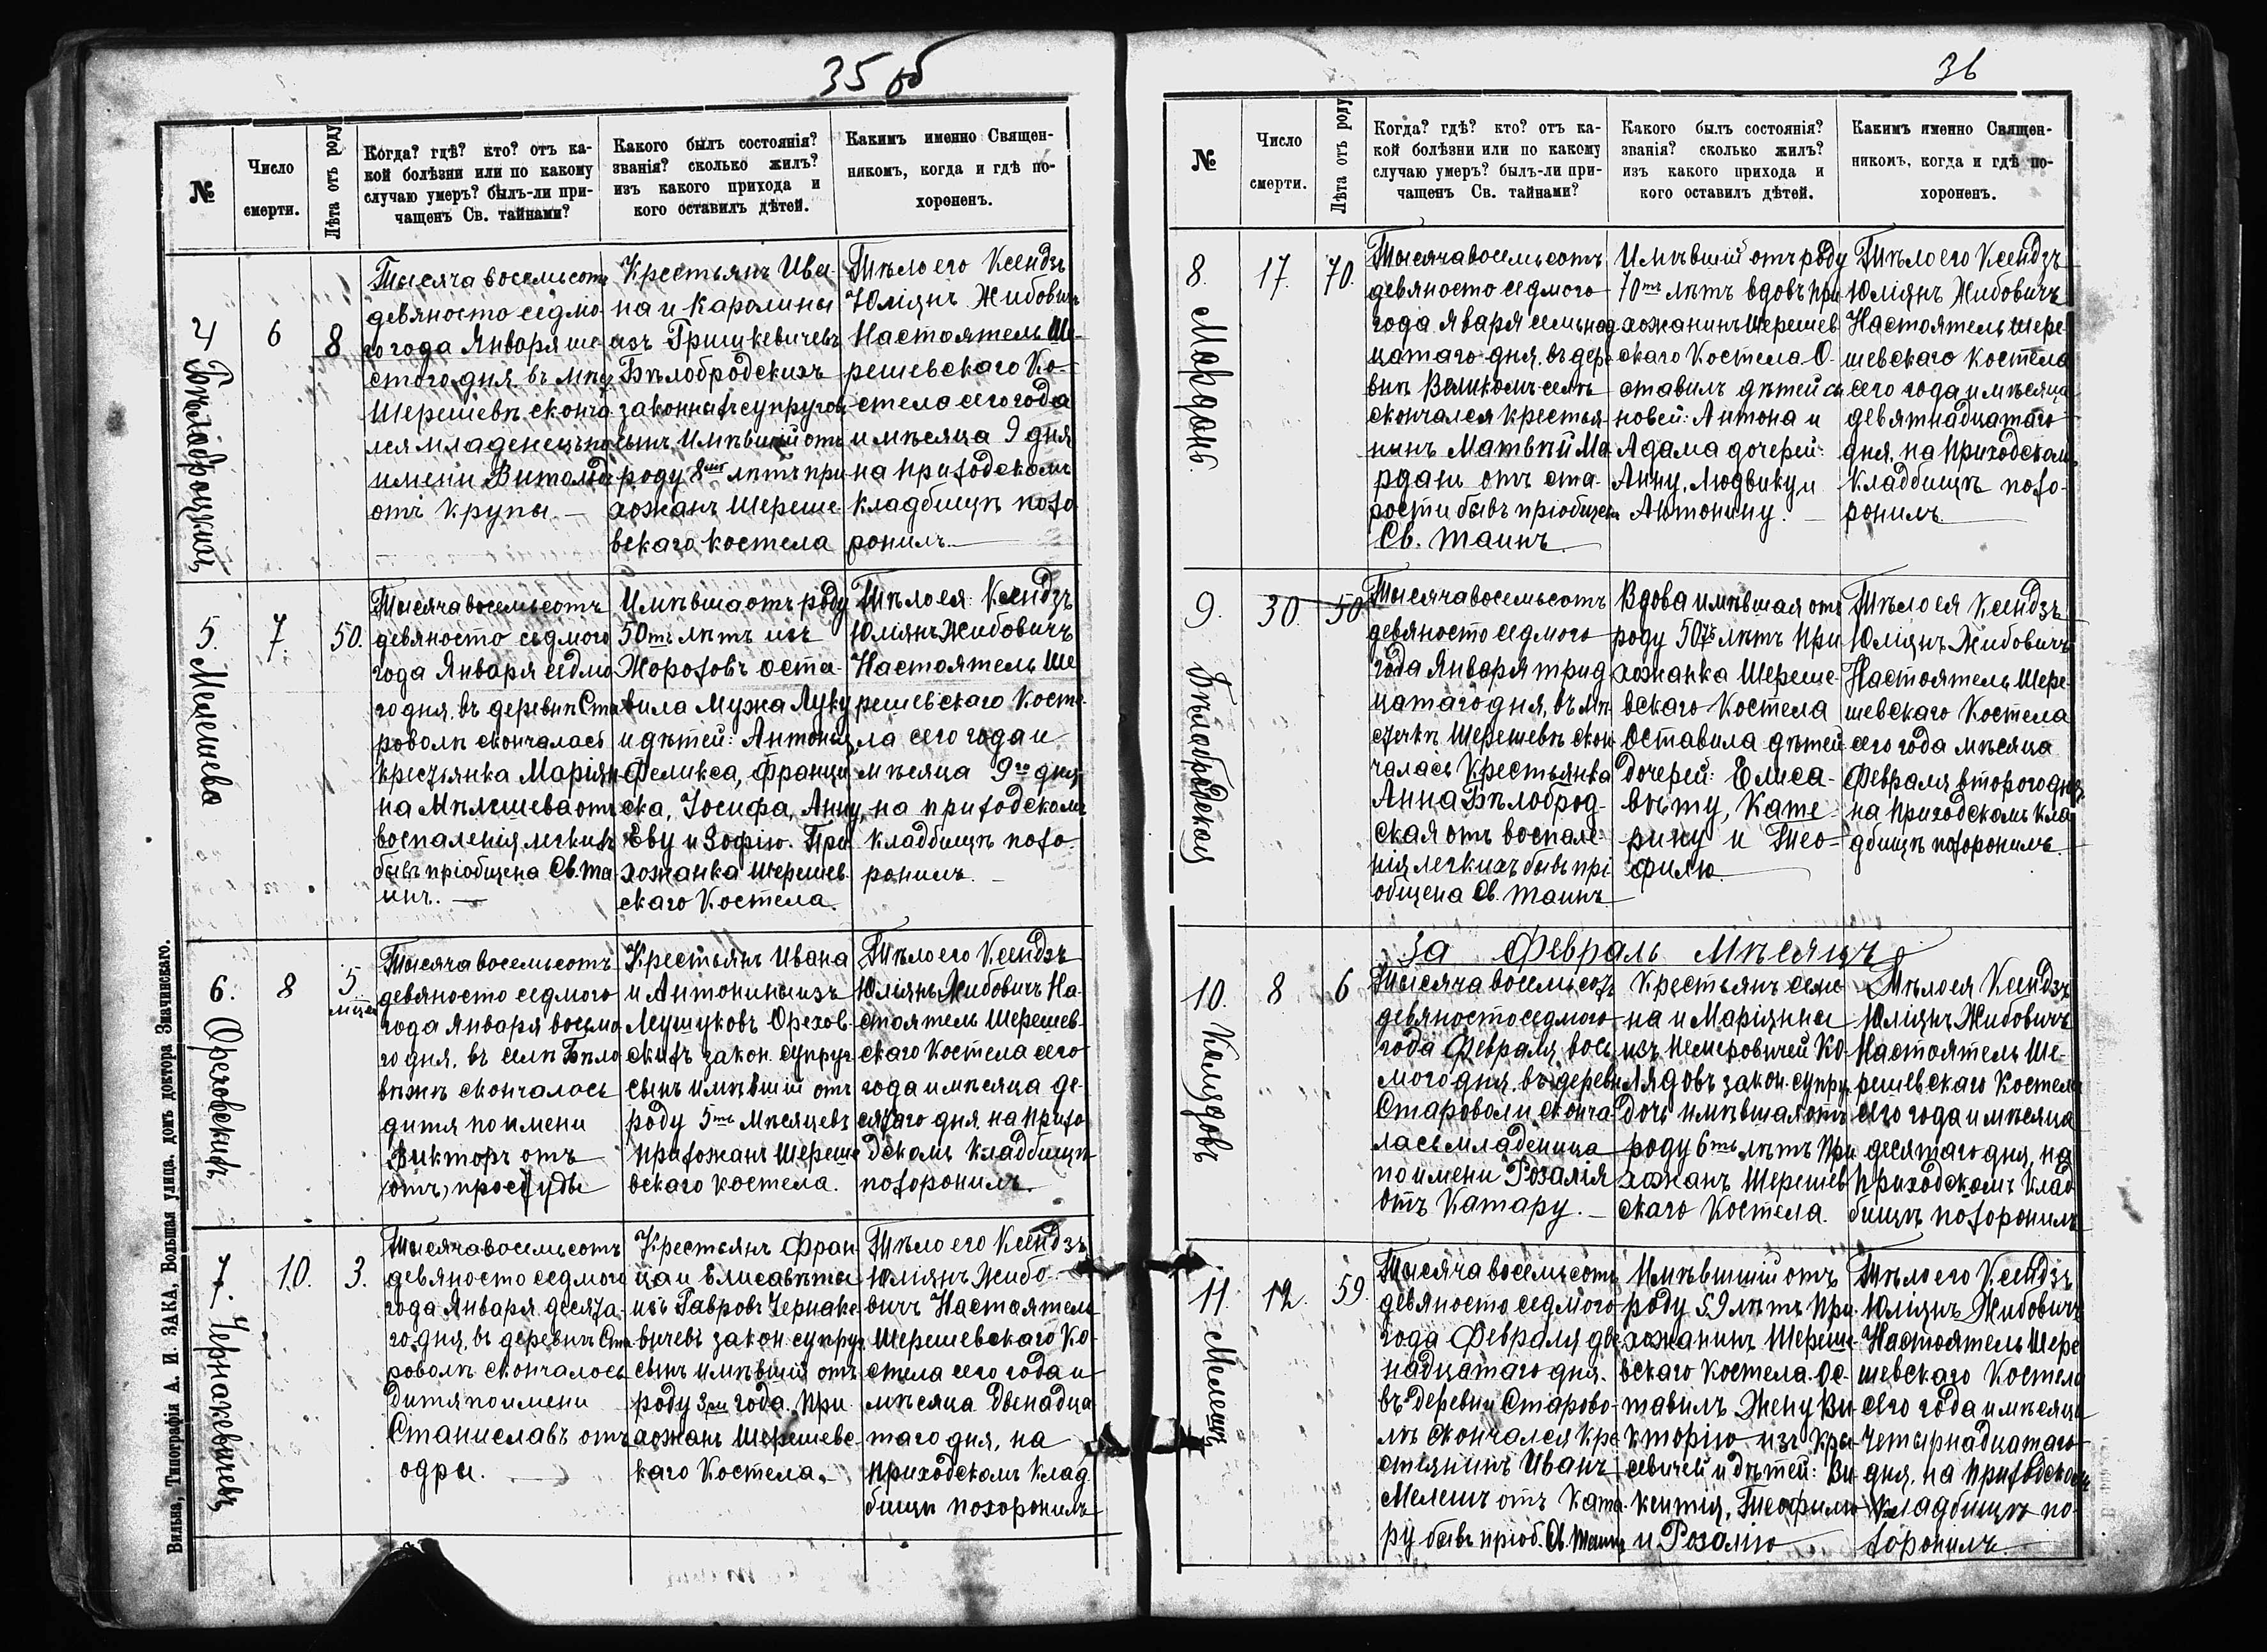 35 об
№
Число
смерти.
Лѣта отъ роду
Когда? гдѣ? кто? отъ ка-
кой болѣзни или по какому
случаю умеръ? былъ-ли при-
чащенъ Св. тайнами?
Какого былъ состоянія?
званія? сколько жилъ?
изъ какого прихода и
кого оставилъ дѣтей.
Какимъ именно Священ-
никомъ, когда и гдѣ по-
хороненъ.
4
6
8
Тысяча восемьсотъ
девяносто седмо
го года Января ше
стого дня въ мѣс
Шерешевѣ сконча
лся младенецъ по
имени Витольд
отъ крупы. —
Крестьянъ Ива
на и Каролины
изъ Гришкевичевъ
Бѣлобродскихъ
законныхъ супруговъ
сынъ Имѣвшій отъ
роду 8 лѣтъ при
хожанъ Шереше-
вскаго костела
Тѣло его Ксендзъ
Юліянъ Жибовичъ
Настоятель Ше-
решевскаго Ко-
стела сего года
и мѣсяца 9 дня
на приходскомъ
кладбищѣ похо
ронилъ.
5. Мелешева
7.
50.
Тысяча восемьсотъ
девяносто седмого
года Января седмо
го дня въ деревнѣ Ста
роволѣ скончалась
крестьянка Маріян
на Мѣлешева отъ
воспаленія легкихъ
бывъ пріобщена Св. та
инъ. —
Имѣвша отъ роду
50тъ лѣтъ изъ
Жороховъ оста-
вила Мужа Луку
и дѣтей: Антонія,
Феликса, Франци
ска, Іосифа, Анну,
Еву и Зофію. При
хожанка Шерешев
скаго Костела.
Тѣло ея Ксендзъ
Юліянъ Жибовичъ
Настоятель Ше
решевскаго Косте-
ла сего года и
мѣсяца 9го дня,
на приходскомъ
кладбищѣ похо
ронилъ. —
6. Ореховскихъ
8
5
мѣсяц
Тысяча восемьсотъ
девяносто седмого
года Января восьмо
го дня, въ селѣ Бѣло
вѣжѣ скончалось
дитя по имени
Викторъ отъ
(отъ) простуды
Крестьянъ Ивана
и Антонины изъ
Мушуковъ Орехов-
скихъ закон. супруг
сынъ имѣвшій отъ
роду 5ть Мѣсяцевъ
прихожанъ Шереше
вскаго костела.
Тѣло его Ксендзъ
Юліянъ Жибовичъ На-
стоятель Шерешев-
скаго Костела сего
года и мѣсяца де-
сятаго дня, на прихо
дскомъ кладбищѣ
похоронилъ.
7. Чернакевичевъ
10.
3.
Тысяча восемьсотъ
девяносто седмого
года Января десята-
го дня, въ деревнѣ Ста
роволѣ скончалось
Дитя по имени
Станиславъ отъ
одры.
Крестьянъ Фран
ца и Елисаветы
изъ Гавровъ Чернаке
вичевъ закон. супруг
сынъ имѣвшій отъ
роду 3ри года. При
хожанъ Шерешевс
каго Костела. —
Тѣло его Ксендзъ
Юліянъ Жибо-
вичъ Настоятель
Шерешевскаго Ко
стела сего года и
мѣсяца двенадца
таго дня, на
приходскомъ клад
бищѣ похоронилъ
Вильна, Типографія А. И. ЗАКА, Большая улица, домъ доктора Значинскаго.
36
№
Число
смерти.
Лѣта отъ роду
Когда? гдѣ? кто? отъ ка-
кой болѣзни или по какому
случаю умеръ? былъ-ли при-
чащенъ Св. тайнами?
Какого былъ состоянія?
званія? сколько жилъ?
изъ какого прихода и
кого оставилъ дѣтей.
Какимъ именно Священ-
никомъ, когда и гдѣ по-
хороненъ.
8. Мордонь
17.
70.
Тысяча восемьсотъ
девяносто седмого
года яваря семьнад
цатаго дня, въ дере
внѣ Великомъ селѣ
скончался крестья-
нинъ Матвѣй Ма
рдань отъ ста-
рости бывъ пріобщен
Св. таинъ.
Имѣвшій отъ роду
70тъ лѣтъ вдовъ при
хожанинъ Шерешев
скаго Костела. О-
ставилъ дѣтей сы
новей: Антона и
Адама дочерей:
Анну, Людвику и
Антонину. —
Тѣло его Ксендзъ
Юліянъ Жибовичъ
Настоятель Шере-
шевскаго костела
сего года и мѣсяца
девятнадцатаго
дня, на приходскомъ
кладбищѣ похо-
ронилъ.
9. Бѣлобродская
30.
50.
Тысяча восемьсотъ
девяносто седмого
года Января трид
цатаго дня, въ мѣ
стечкѣ Шерешевѣ скон
чалась Крестьянка
Анна Бѣлоброд-
ская отъ воспале-
нія легкихъ бывъ прі
общена Св. таинъ
Вдова имѣвшая отъ
роду 50тъ лѣтъ при
хожанка Шереше-
вскаго Костела
Оставила дѣтей
дочерей: Елиса-
вету, Кате-
рину и Тео-
филю.
Тѣло ея Ксендзъ
Юліянъ Жибовичъ
Настоятель Шере-
шевскаго Костела
сего года мѣсяца
Февраля второго дня,
на приходскомъ кла
дбищѣ похоронилъ.
За Февраль Мѣсяцъ
10. Колядовъ
8
6
Тысяча восемьсотъ
девяносто седмого
года Февраля вось
мого дня, въ деревн
Староволи сконча-
лась младеница
по имени Розалія
отъ Катару. —
Крестьянъ Семе
на и Маріянны
изъ Немеровичей Ко-
лядовъ закон. супру.
дочь имѣвшая отъ
роду 6ть лѣтъ При
хожанъ Шерешев
скаго Костела.
Тѣло ея Ксендзъ
Юліянъ Жибовичъ
Настоятель Ше-
решевскаго Костела
сего года и мѣсяца
десятаго дня, на
приходскомъ клад
бищѣ похоронилъ
11. Мелешъ
12.
59.
Тысяча восемьсотъ
девяносто седмого
года Февраля две
надцатаго дня.
въ деревни Старово-
лѣ скончался кре
стянинъ Иванъ
Мелешъ отъ Ката-
ру бывъ пріоб. Св. Таинъ
Имѣвшій отъ
роду 59 лѣтъ При-
хожанинъ Шереше-
вскаго Костела. Ос-
тавилъ Жену Ви-
кторію изъ Кры-
севичей и дѣтей: Ви-
кентія, Теофилю
и Розалію
Тѣло его Ксендзъ
Юліянъ Жибовичъ
Настоятель Шере
шевскаго Костела
сего года и мѣсяца
четырнадцатаго
дня, на приходском
кладбищѣ по-
хоронилъ.